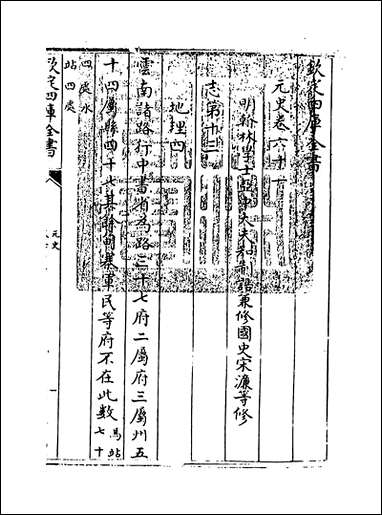 欽定四庫全書
元史卷六十一
明翰林學士亞中大夫知制誥兼修國史宋濂等修
志第十三
地理四
雲南諸路行中書省為路三十七府二屬府三屬州五
十四屬縣四十七其餘甸寨軍民等府不在此數馬站七十
四處水站四處
欽定四庫全書 元史